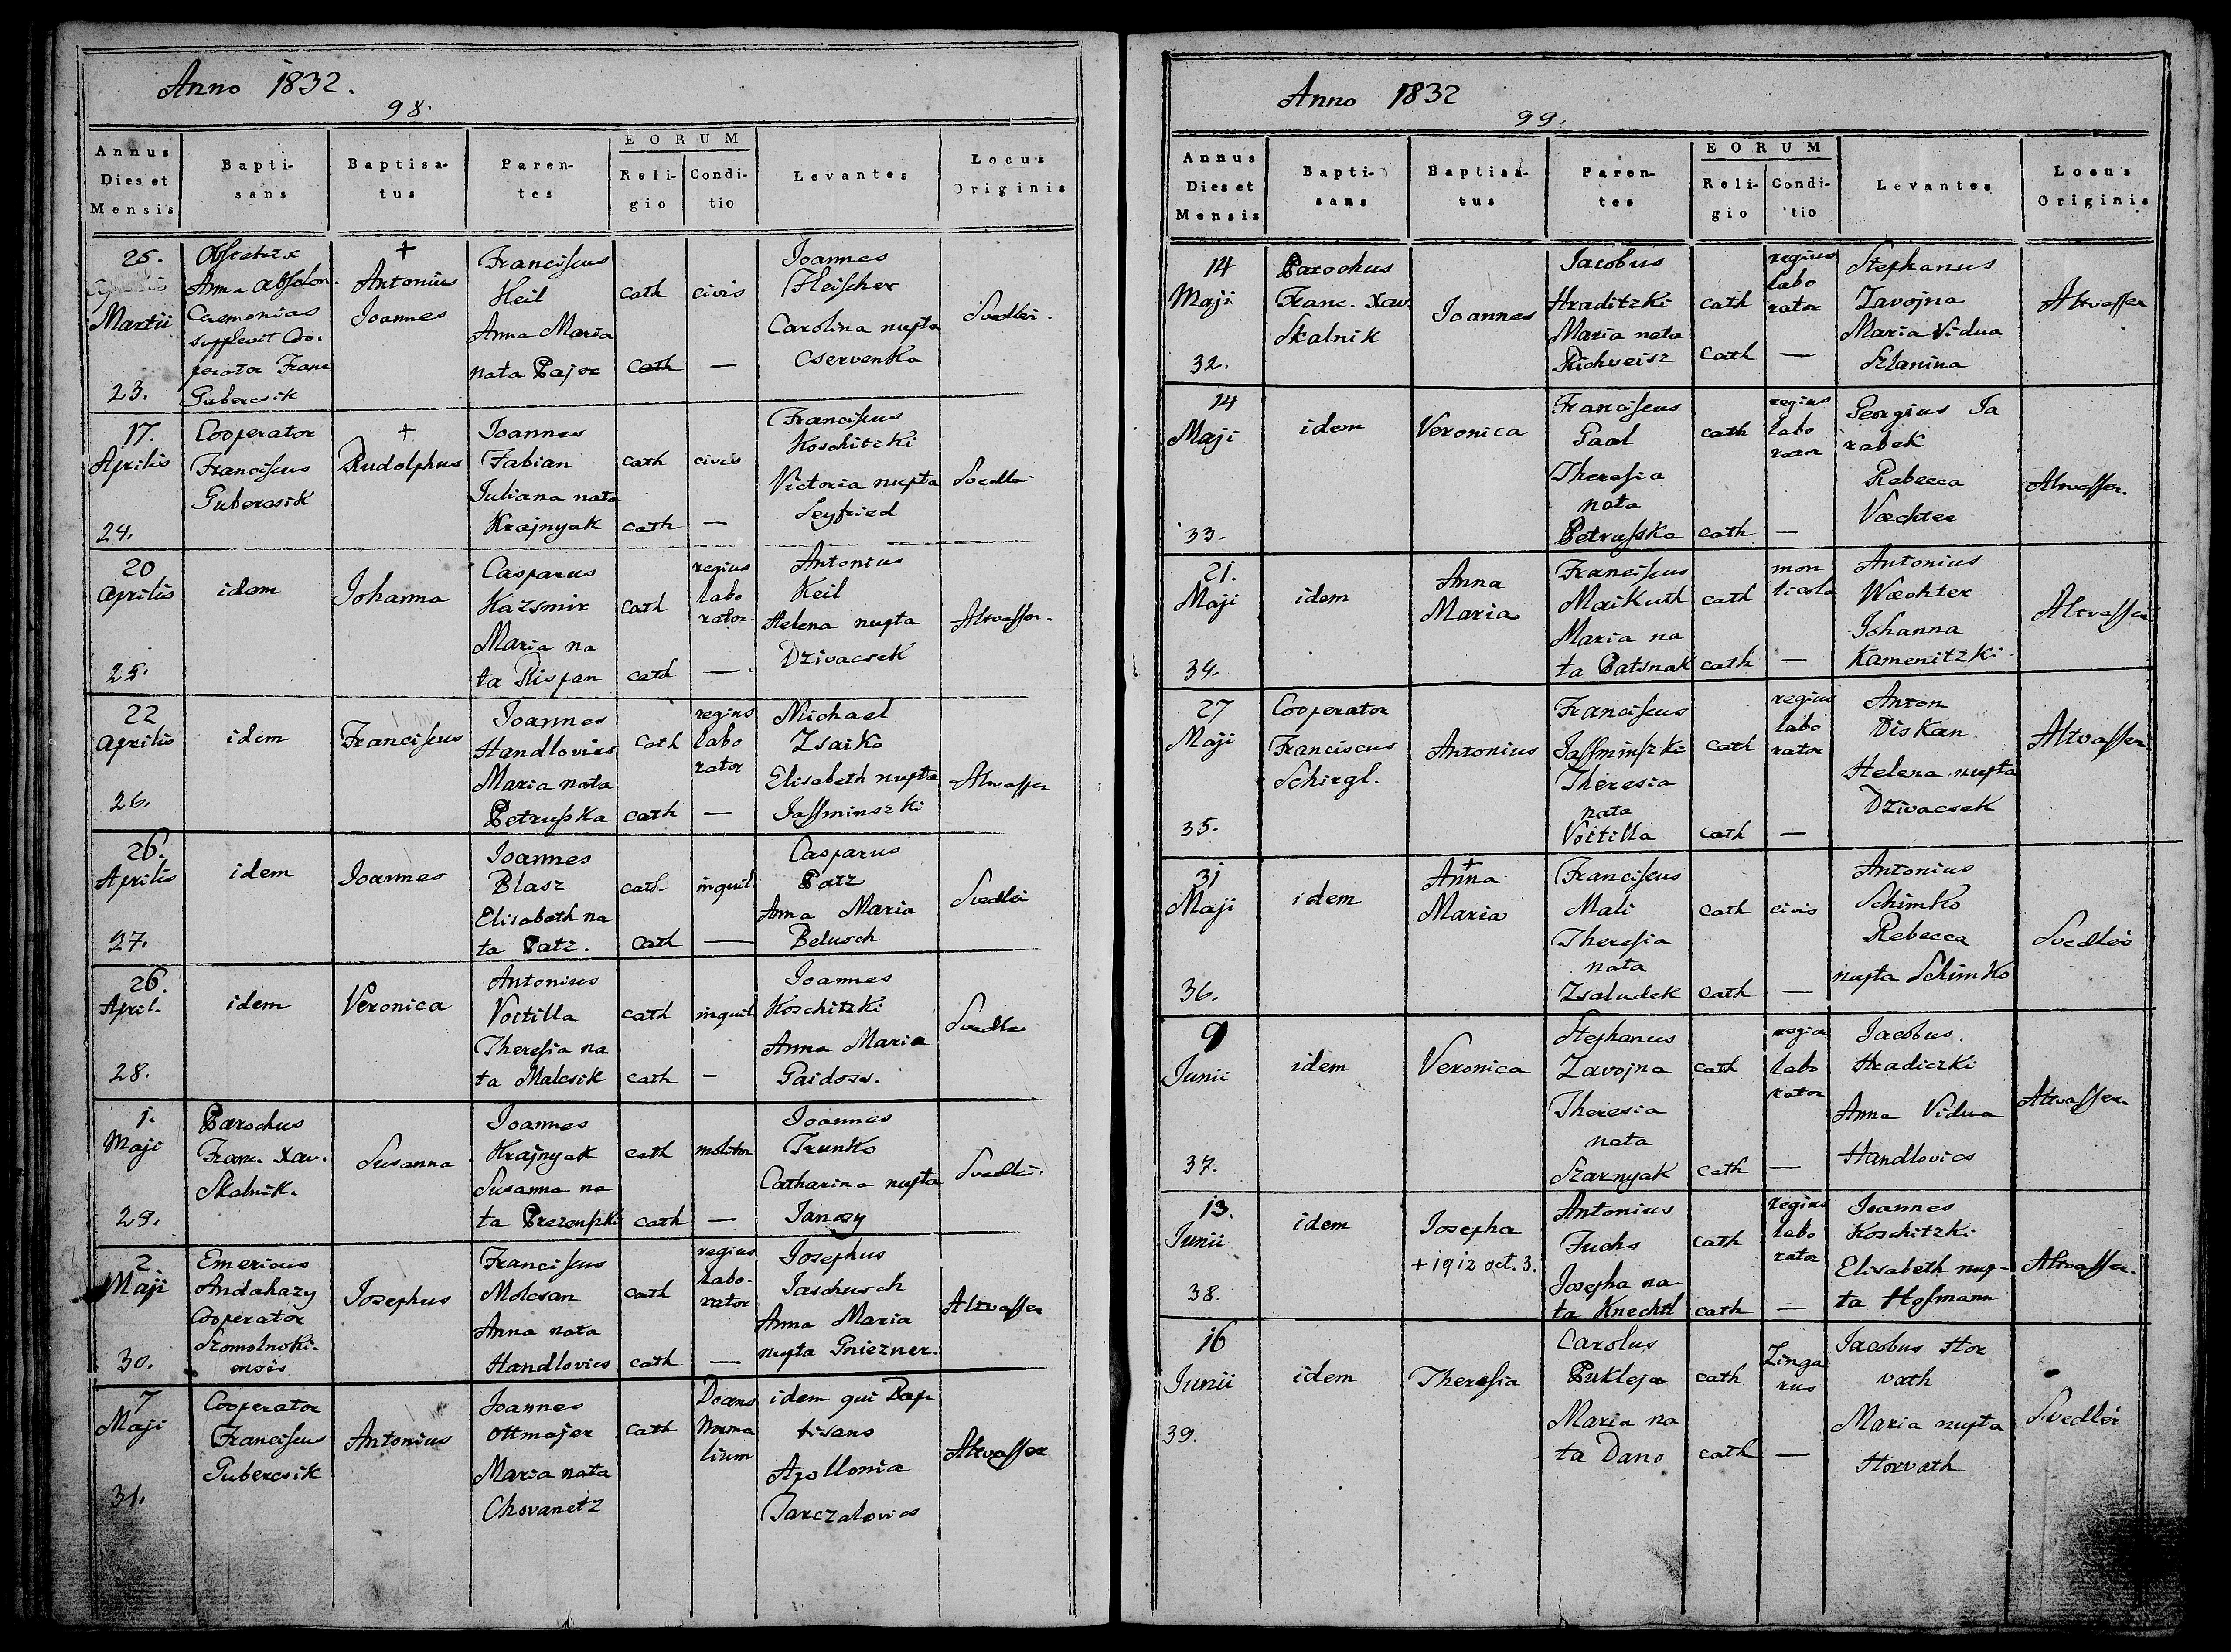 Anno 1832.
98.
Annus Dies et Mensis
Baptisans
Baptisatus
Parentes
EORUM
Religio
Conditio
Levantes
Locus Originis
25.
Martii
23.
Obstetrix
Anna Absolon.
Caemonias
supplevit Coo.
perator Franc
Gubercsik
+
Antonius
Joannes
Franciscus
Keil
Anna Maria
nata Pajor
cath
cath
civis
—
Joannes
Fleischer
Carolina nupta
Cservenka
Svedler.
17.
Aprilis
24.
Cooperator
Franciscus
Gubercsik
+
Rudolphus
Joannes
Fabian
Juliana nata
Krajnyak
cath
cath
civis
—
Franciscus
Koschitzki
Victoria nupta
Seyfried
Svedler
20
Aprilis
25.
idem
Johanna
Casparus
Kazsmir
Maria na
ta Rispan
cath
cath
regius
labo
rator.
—
Antonius
Keil
Helena nupta
Dzivacsek
Altvasser.
22
Aprilis
26.
idem
Franciscus
Joannes
Handlovics
Maria nata
Petruska
cath
cath
regius
labo
rator
—
Michael
Zsaiko
Elisabeth nupta
Jassminszki
Altvasser
26.
Aprilis
27.
idem
Joannes
Joannes
Blasz
Elisabeth na
ta Patz.
cath.
cath
inquil.
—
Casparus
Patz
Anna Maria
Belusch
Svedler
26.
April.
28.
idem
Veronica
Antonius
Voitilla
Theresia na
ta Malcsik
cath
cath
inquil
—
Joannes
Koschitzki
Anna Maria
Gaidoss.
Svedler
1.
Maji
29.
Parochus
Franc. Xav.
Skalnik.
Susanna
Joannes
Krajnyak
Susanna na
ta
cath
cath
molitor
—
Joannes
Trunko
Catharina nupta
Janosy
Svedler.
2.
Maji
30.
Emericus
Andahazy
Cooperator
Szomolnoki-
ensis
Josephus
Franciscus
Molcsan
Anna nata
Handlovics
cath
cath
regius
labo-
rator
—
Josephus
Jaschusch
Anna Maria
nupta Gniezner.
Altvasser
7
Maji
31.
Cooperator
Franciscus
Gubercsik
Antonius
Joannes
Ottmajer
Maria nata
Chovanetz
cath
Doans
Norma
lium
idem qui Bap
tisans
Apollonia
Tarczalovics
Altvasser
Anno 1832
99.
Annus Dies et Mensis
Baptisans
Baptisatus
Parentes
EORUM
Religio
Conditio
Levantes
Locus Originis
14
Maji
32.
Parochus
Franc. Xav.
Skalnik
Joannes
Jacobus
Hraditzki
Maria nata
Richveisz
cath
cath
regius
labo
rator
—
Stephanus
Zavojna
Maria Vidua
Szlanina
Altvasser
14
Maji
33.
idem
Veronica
Franciscus
Gaal
Theresia
nata
Petruska
cath
cath
regius
labo
rator
—
Georgius Ja
rabek
Rebecca
Væchter
Altvasser.
21.
Maji
34.
idem
Anna
Maria
Franciscus
Maikuth
Maria na
ta Patsnak
cath
cath
mon
ticola
—
Antonius
Wæchter
Johanna
Kamenitzki
Altvasser
27
Maji
35.
Cooperator
Franciscus
Schirgl.
Antonius
Franciscus
Jassminszki
Theresia
nata
Voitilla
cath
cath
regius
labo
rator
—
Anton
Diskan
Helena nupta
Dzivacsek
Altvasser
31
Maji
36.
idem
+
Anna
Maria
Franciscus
Mali
Theresia
nata
Zsaludek
cath
cath
civis
—
Antonius
Schimko
Rebecca
nupta Schimko
Svedler
9
Junii
37.
idem
Veronica
Stephanus
Zavojna
Theresia
nata
Szarnyak
cath
cath
regius
labo
rator
—
Jacobus.
Hradiczki
Anna Vidua
Handlovics
Altvasser.
13.
Junii
38.
idem
Josepha
+ 1912 oct. 3.
Antonius
Fuchs
Josepha na-
ta Knechtl
cath
cath
regius
labo
rator
—
Joannes
Koschitzki
Elisabeth nup-
ta Hofmann
Altvasser.
16
Junii
39.
idem
Theresia
Carolus
Pukleja
Maria na
ta Dano
cath
cath
Zinga
rus
—
Jacobus Hor
vath
Maria nupta
Horvath
Svedler